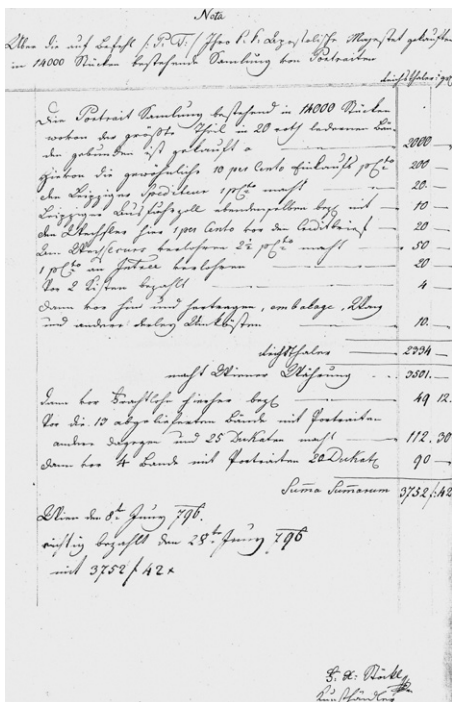 Nota
Über die auf Befehl (: P: T :) Ihro k: k: Apostolische Majestet gekauften
in 14000 Stücken bestehende Samlung von Portraiten
Reichsthaler
Die Portrait Samlung bestehend in 14000 Stücken
wovon der größte Theil in 20 roth ledernen Bän-
den gebunden ist gekauft a — 2000 —
hievon die gewöhnliche 10 per Cento Einkauf — 200 —
den Leipziger Spediteur 1 pCto macht — 20. —
Leipziger Ausfuhrzoll — mit — 10 —
den Wechsler hier 1 per Cento vor den Creditbrief — 20 —
verlohren 2½ pCto macht — 50 —
1 pCto an verlohren — 20 —
Vor 2 Kisten bezahlt — 4 —
dann vor hin und hertragen, embalage,
und andere Unkösten — 10. —
Reichsthaler — 2334 —
macht Wiener Währung — 3501. —
dann vor Frachtlohn hieher — 49 12.
Vor die 13 abgelieferten Bände mit Portraiten
andere dagegen und 25 Dukaten macht — 112. 30
dann vor 4 Bände mit Portraiten 20 Dukat — 90 —
Suma Sumarum 3752 f: 42
Wien den 8t Juny 796.
richtig bezahlt den 28t Juny 796
mit 3752 f 42 x
Kunsthändler